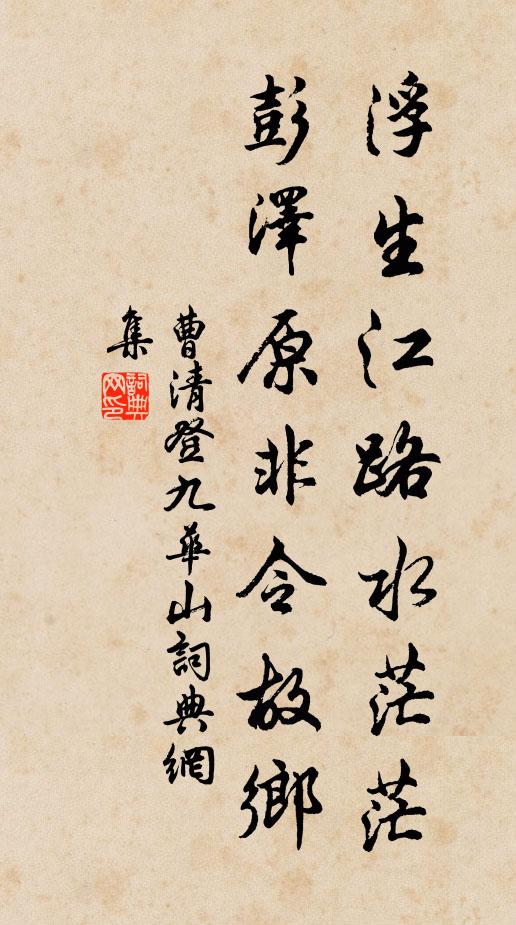 浮生江路水茫茫
彭澤原非令故鄉
曹清登九華山詞典網
集
詞典網印